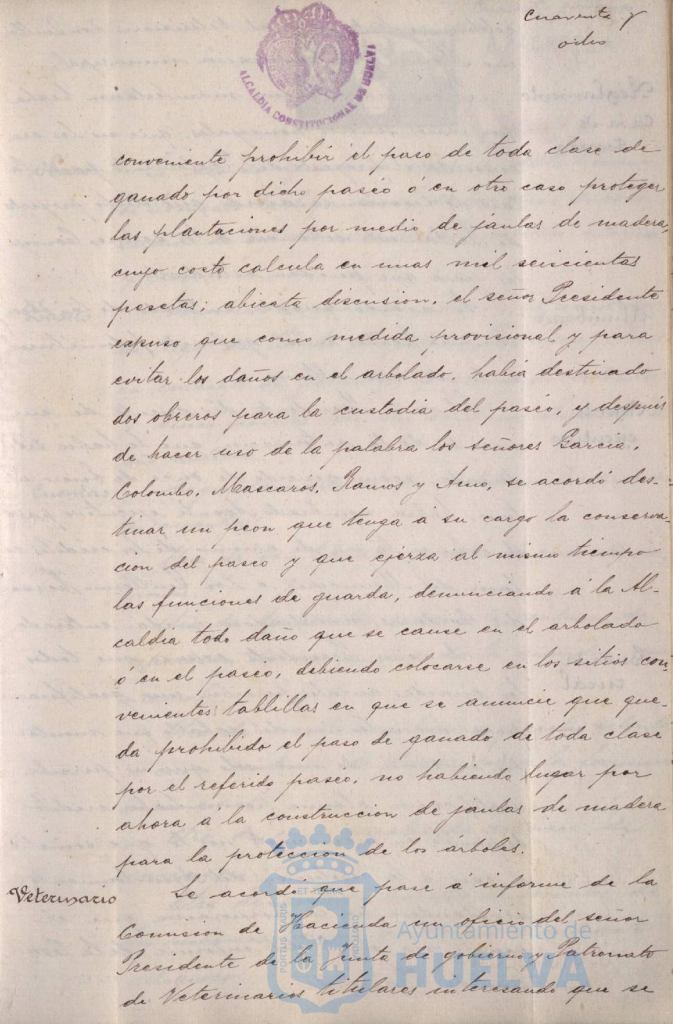 Cuarenta y
ocho
ALCALDIA CONSTITUCIONAL DE HUELVA
conveniente prohibir el paso de toda clase de
ganado por dicho paseo ó en otro caso proteger
las plantaciones por medio de jaulas de madera,
cuyo costo calcula en unas mil seiscientas
pesetas; abierta discusion, el señor Presidente
expuso que como medida provisional y para
evitar los daños en el arbolado, habia destinado
dos obreros para la custodia del paseo, y despues
de hacer uso de la palabra los señores Garcia,
Colombo, Mascarós, Ramos y Amo, se acordó des-
tinar un peon que tenga á su cargo la conserva-
cion del paseo y que ejerza al mismo tiempo
las funciones de guarda, denunciando á la Al-
caldia todo daño que se cause en el arbolado
ó en el paseo, debiendo colocarse en los sitios con-
venientes tablillas en que se anuncie que que-
da prohibido el paso de ganado de toda clase
por el referido paseo, no habiendo lugar por
ahora á la construccion de jaulas de madera
para la proteccion de los árboles.
Veterinario Se acordó que pase á informe de la
Comision de Hacienda un oficio del señor
Presidente de la Junta de gobierno y Patronato
de Veterinarios titulares interesando que se
Ayuntamiento de
HUELVA